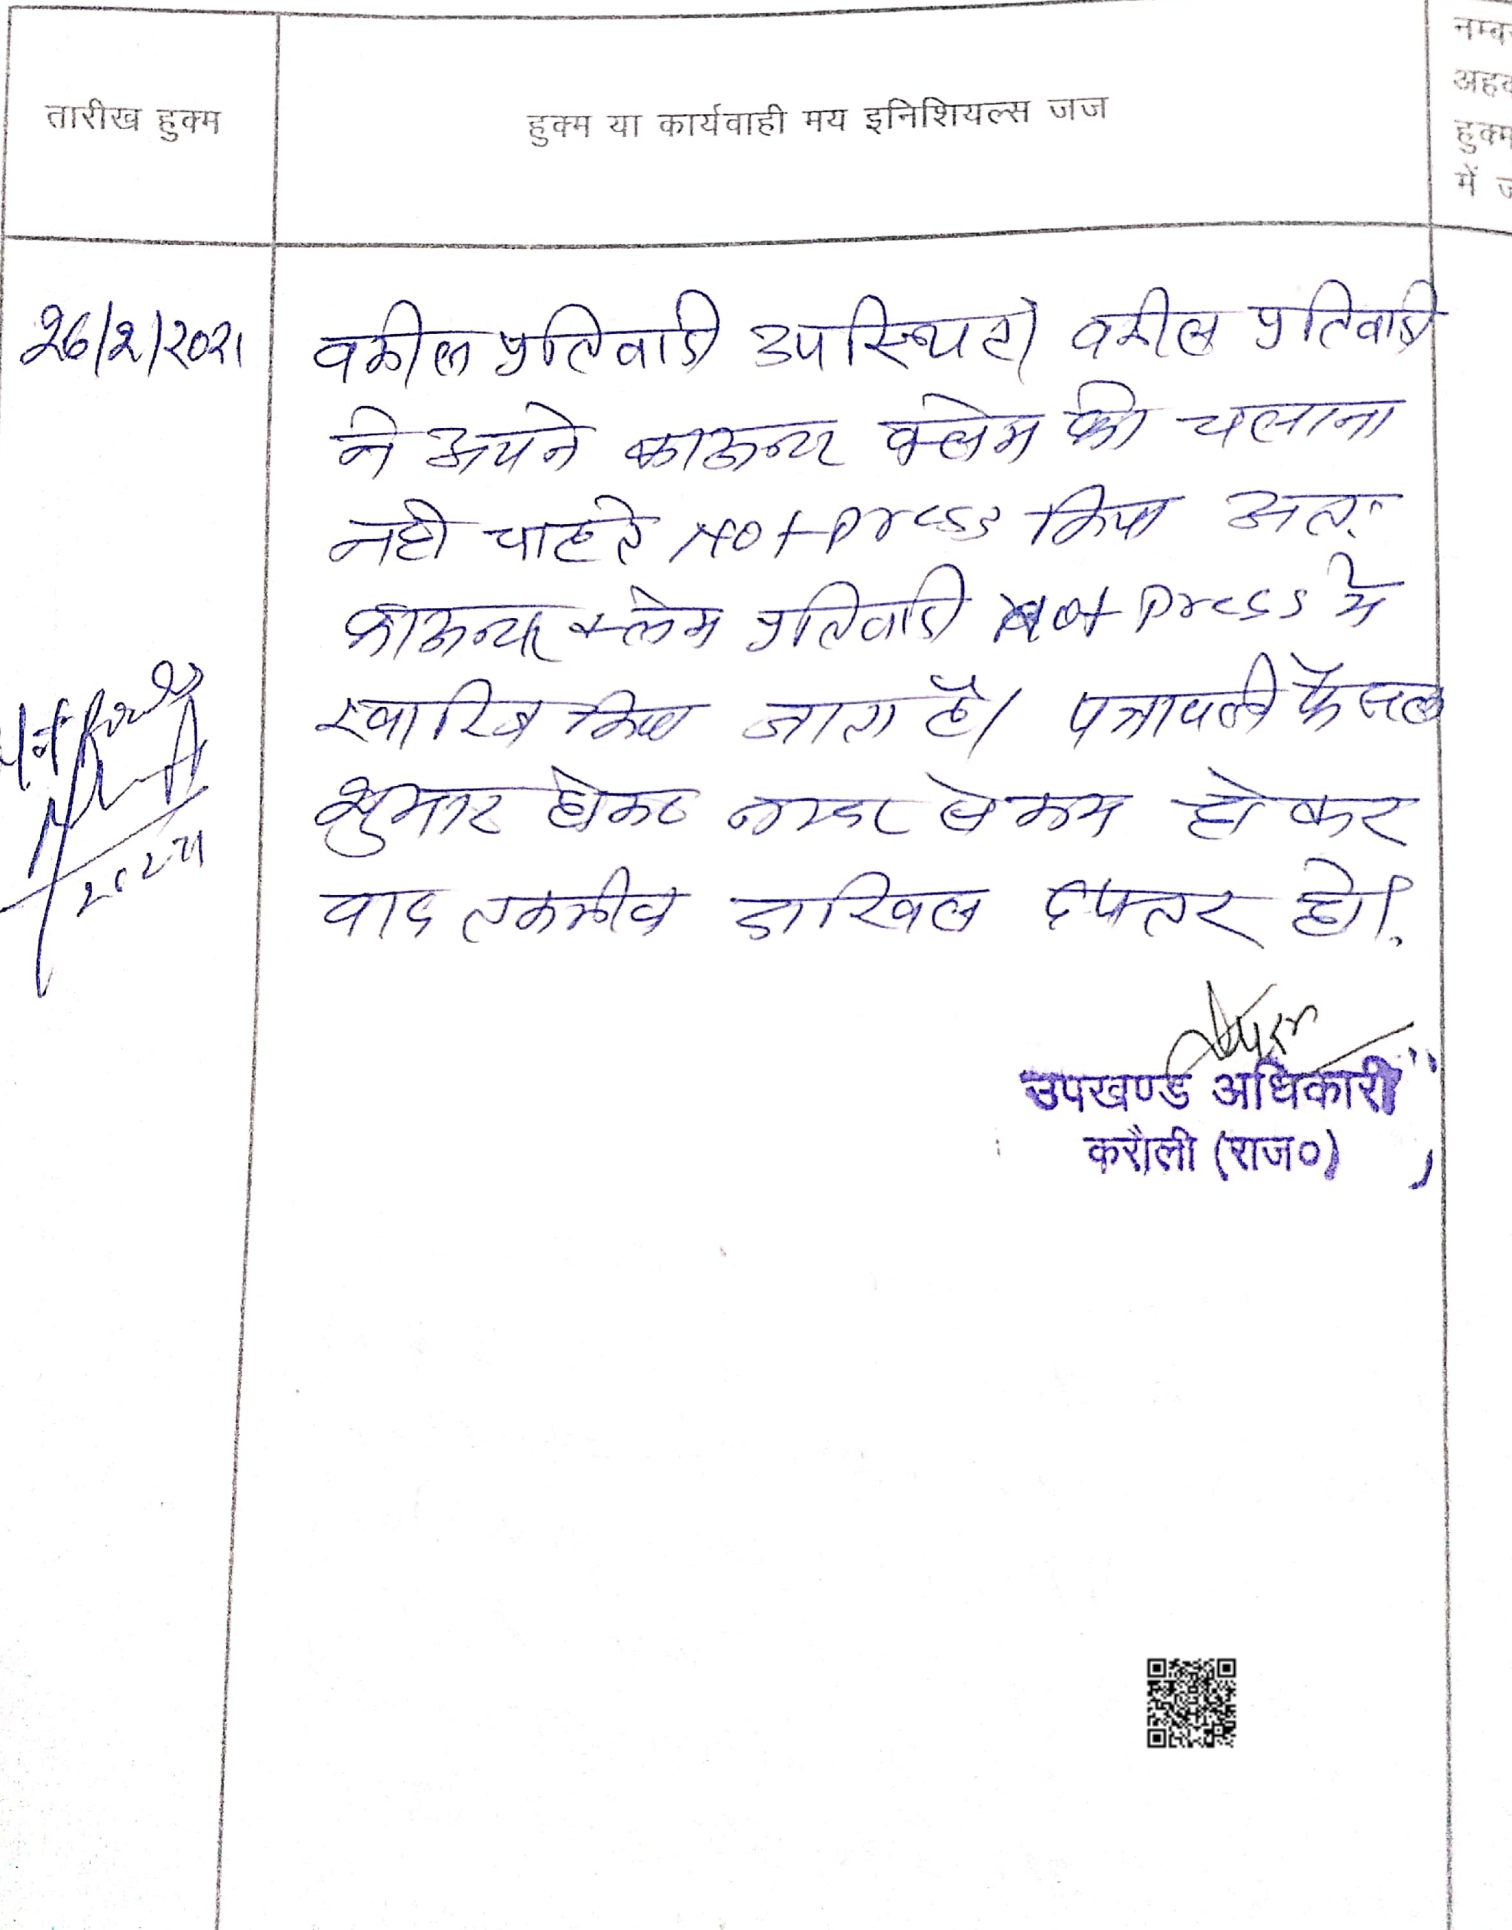 तारीख हुक्म
हुक्म या कार्यवाही मय इनिशियल्स जज
नम्ब
अह
हुक्म
में ज
26/2/2021
वकील प्रतिवादी उपस्थित। वकील प्रतिवादी
ने अपने काउन्टर क्लेम को चलाना
नही चाहते Not Press किया अतः
काउन्टर क्लेम प्रतिवादी Not Press मे
खारिज किया जाता है। पत्रावली फैसल
शुमार होकर नम्बर से कम होकर
वाद तकमील दाखिल दफ्तर हो।
उपखण्ड अधिकारी
करौली (राज०)